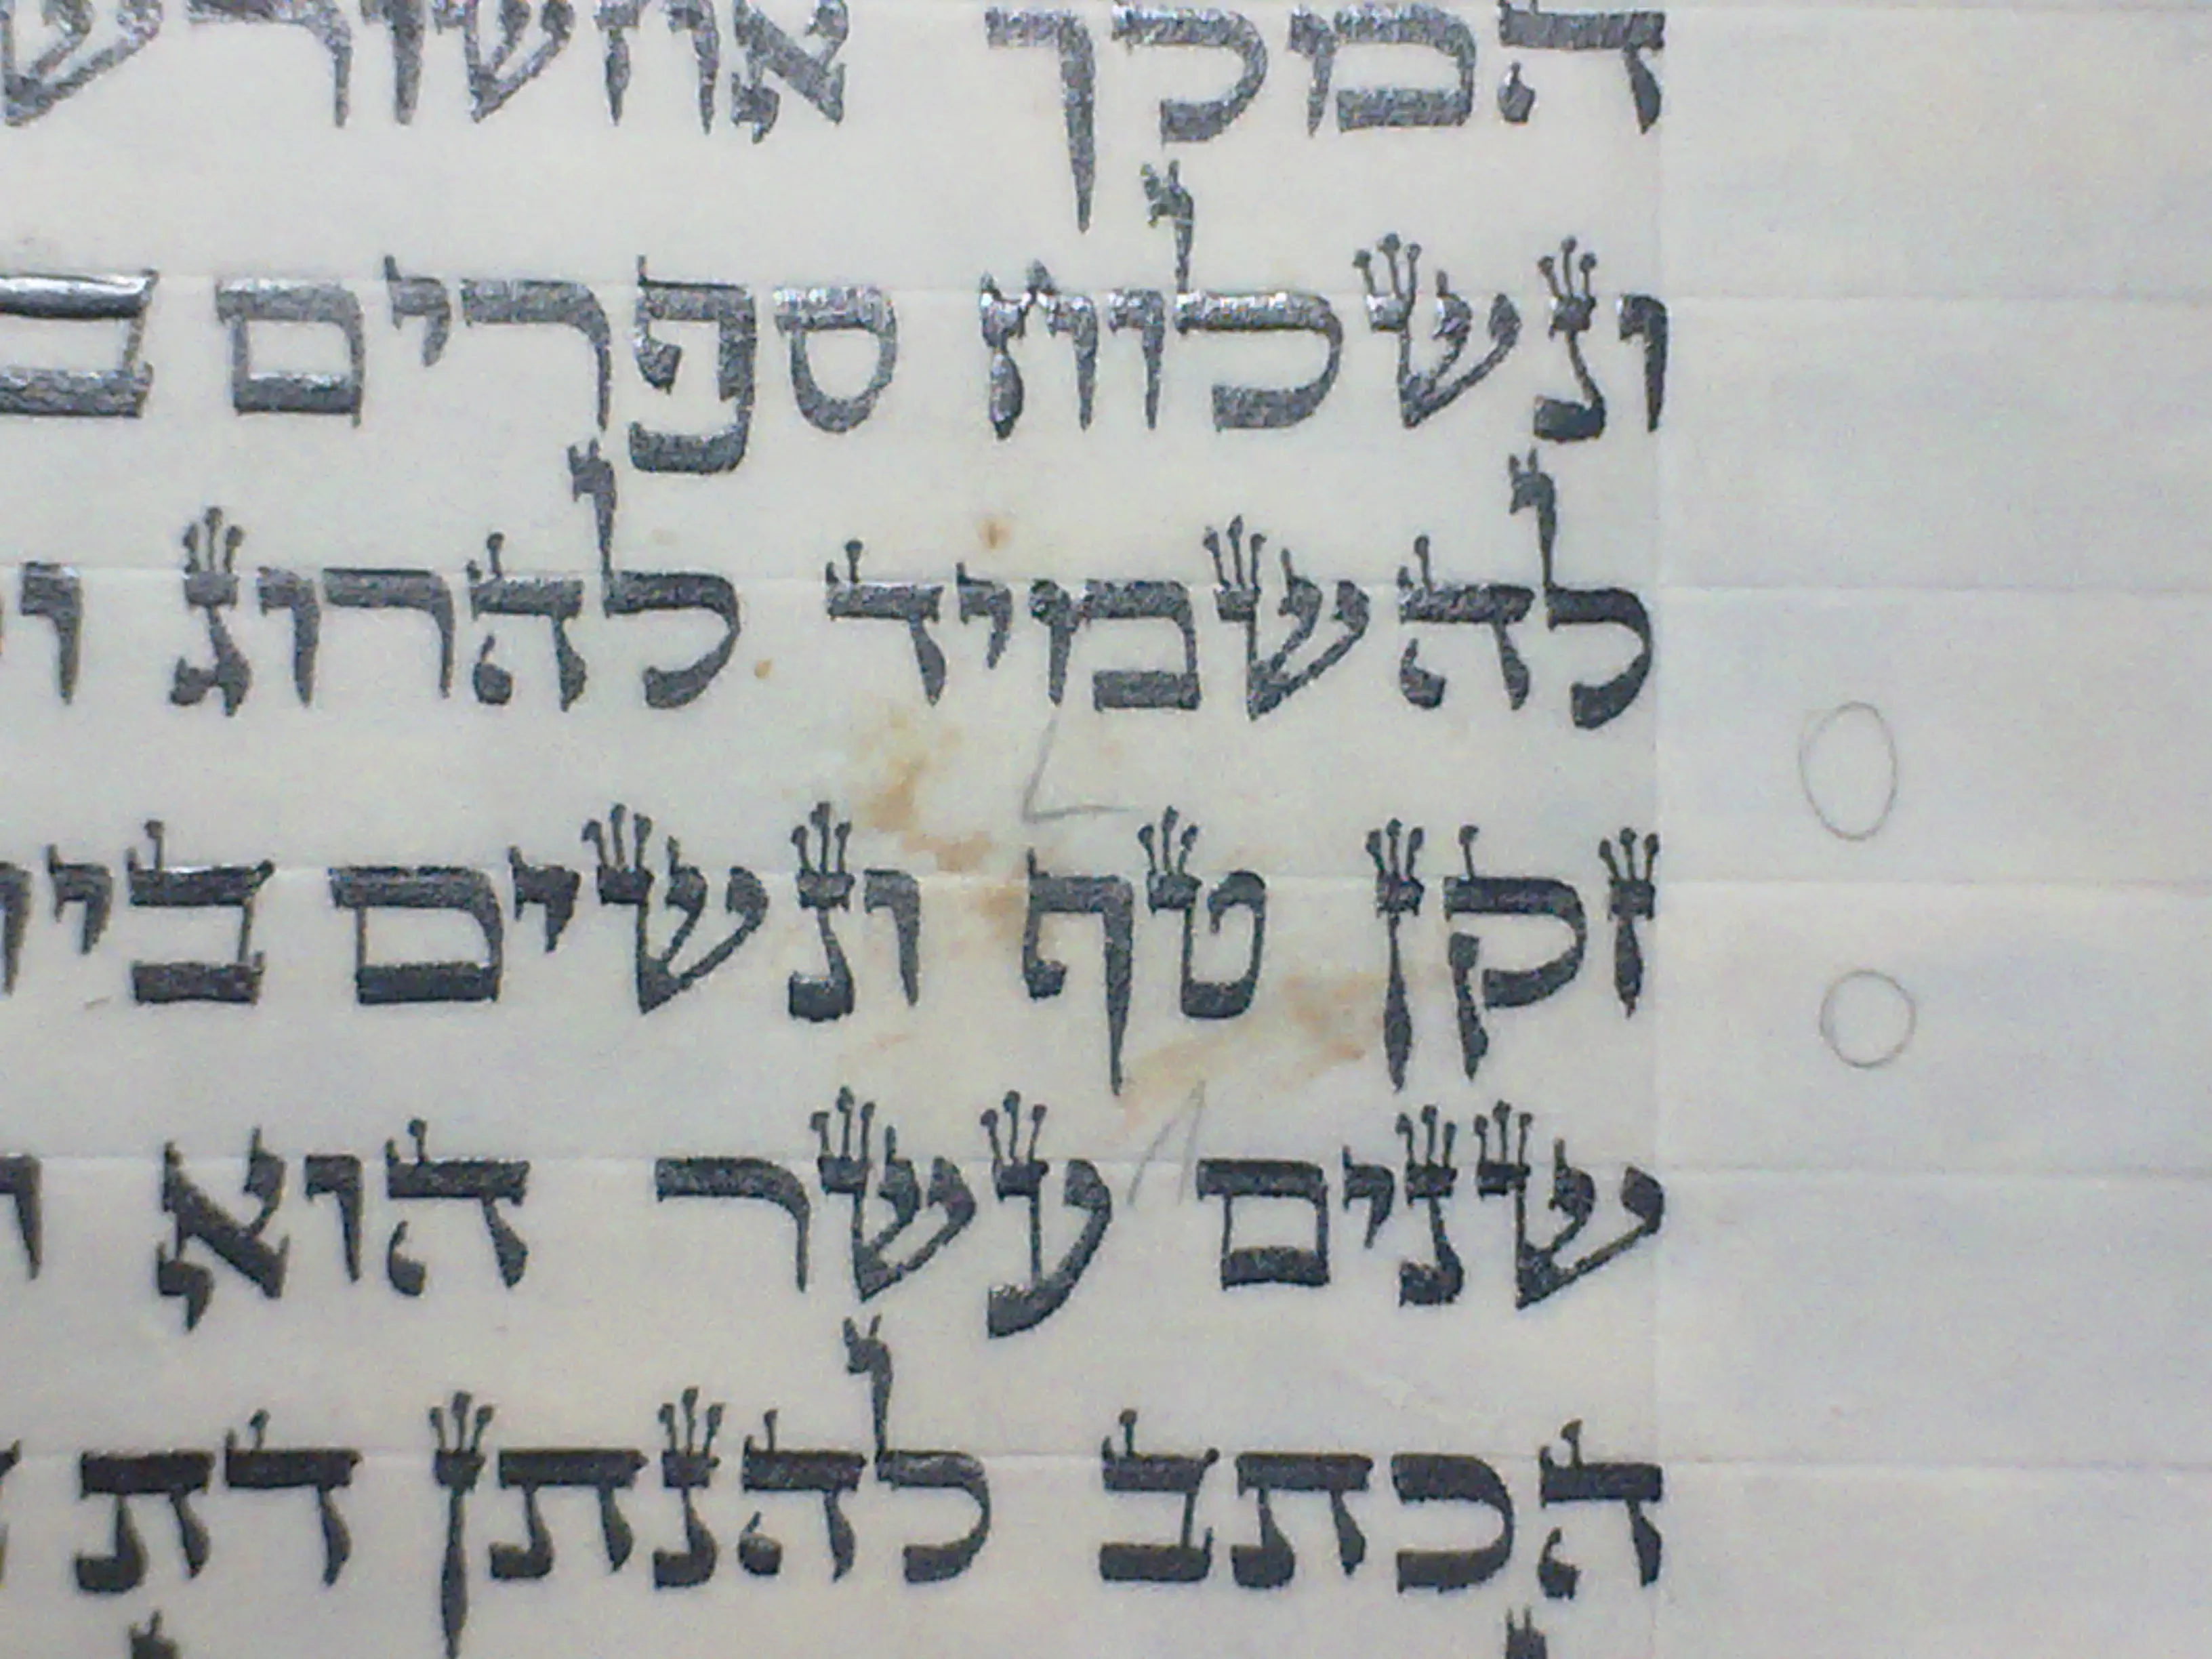 המלך אחשורש
ונשלוח ספרים ב
להשמיד להרוג ו
זקן טף ונשים ביו
שנים עשר הוא
הכתב להנתן דת